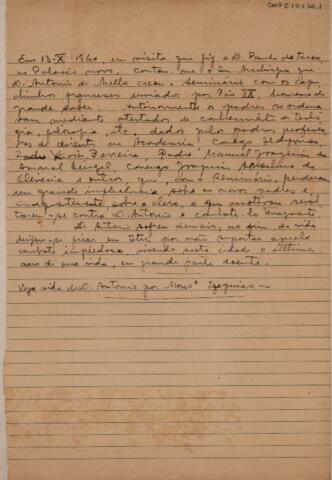 Conf S 17.1.24.1
Em 13-X-1960, em visita que fiz a D. Paulo de Tarso,
no Palacio novo, contou-me o Sr. Arcebispo que
D. Antonio de Mello creou Seminario com os capu
chinhos franceses enviado por Pio IX, homens de
grande saber. Anteriormente os padres se ordena
vam mediante atestados de conhecimentos de teolo
gia, filosofia, etc. dados pelos padres professo
res de direito na Academia, Conego Ildefonso
Xavier Ferreira, Padre Manuel Joaquim do
Amaral Gurgel, conego Joaquim Anselmo de
Oliveira e outros, que, com o Seminário, perderam
sua grande influencia sobre os novos padres e,
indiretamente sobre o clero, o que motivou revol
tarem-se contra D. Antonio e combate-lo
D. Antonio sofreu demais; no fim da vida
ficar em Itú, por não suportar aquele
combate impiedoso, vivendo nesta cidade o ultimo
ano de sua vida, em grande parte doente.
Veja vida de D. Antonio por Mons. Ezequias